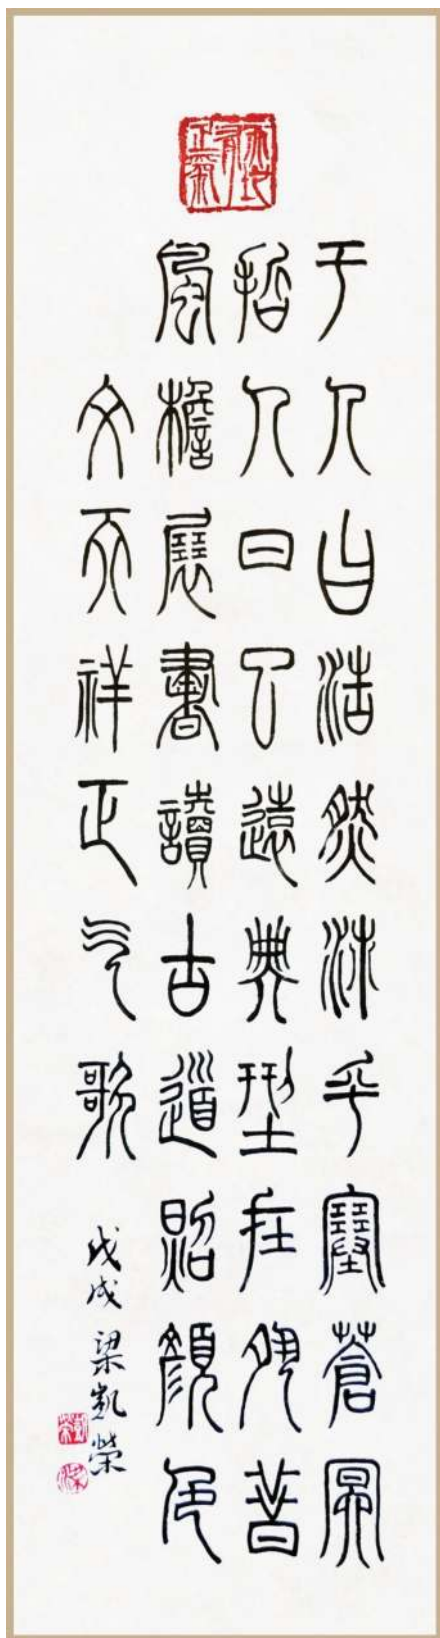 天地有正氣
于人曰浩然沛乎塞蒼冥
哲人日已遠典型在夙昔
風檐展書讀古道照顏色
文天祥正气歌
戊戌 梁凱榮